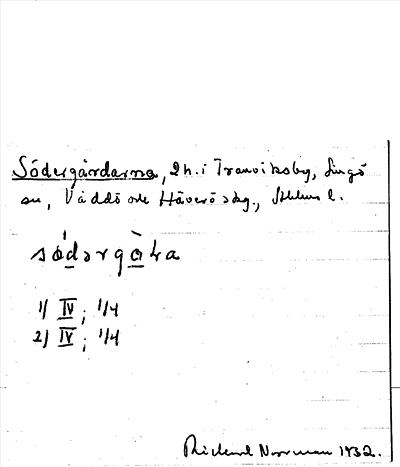 Södergårdarna, 2 h. i Tranviksby, Singö
sn, Väddö och Häverö skg., Sthlms l.
södərgåka
1) IV; 1/4
2) IV; 1/4
Rickard Norrman 1932.